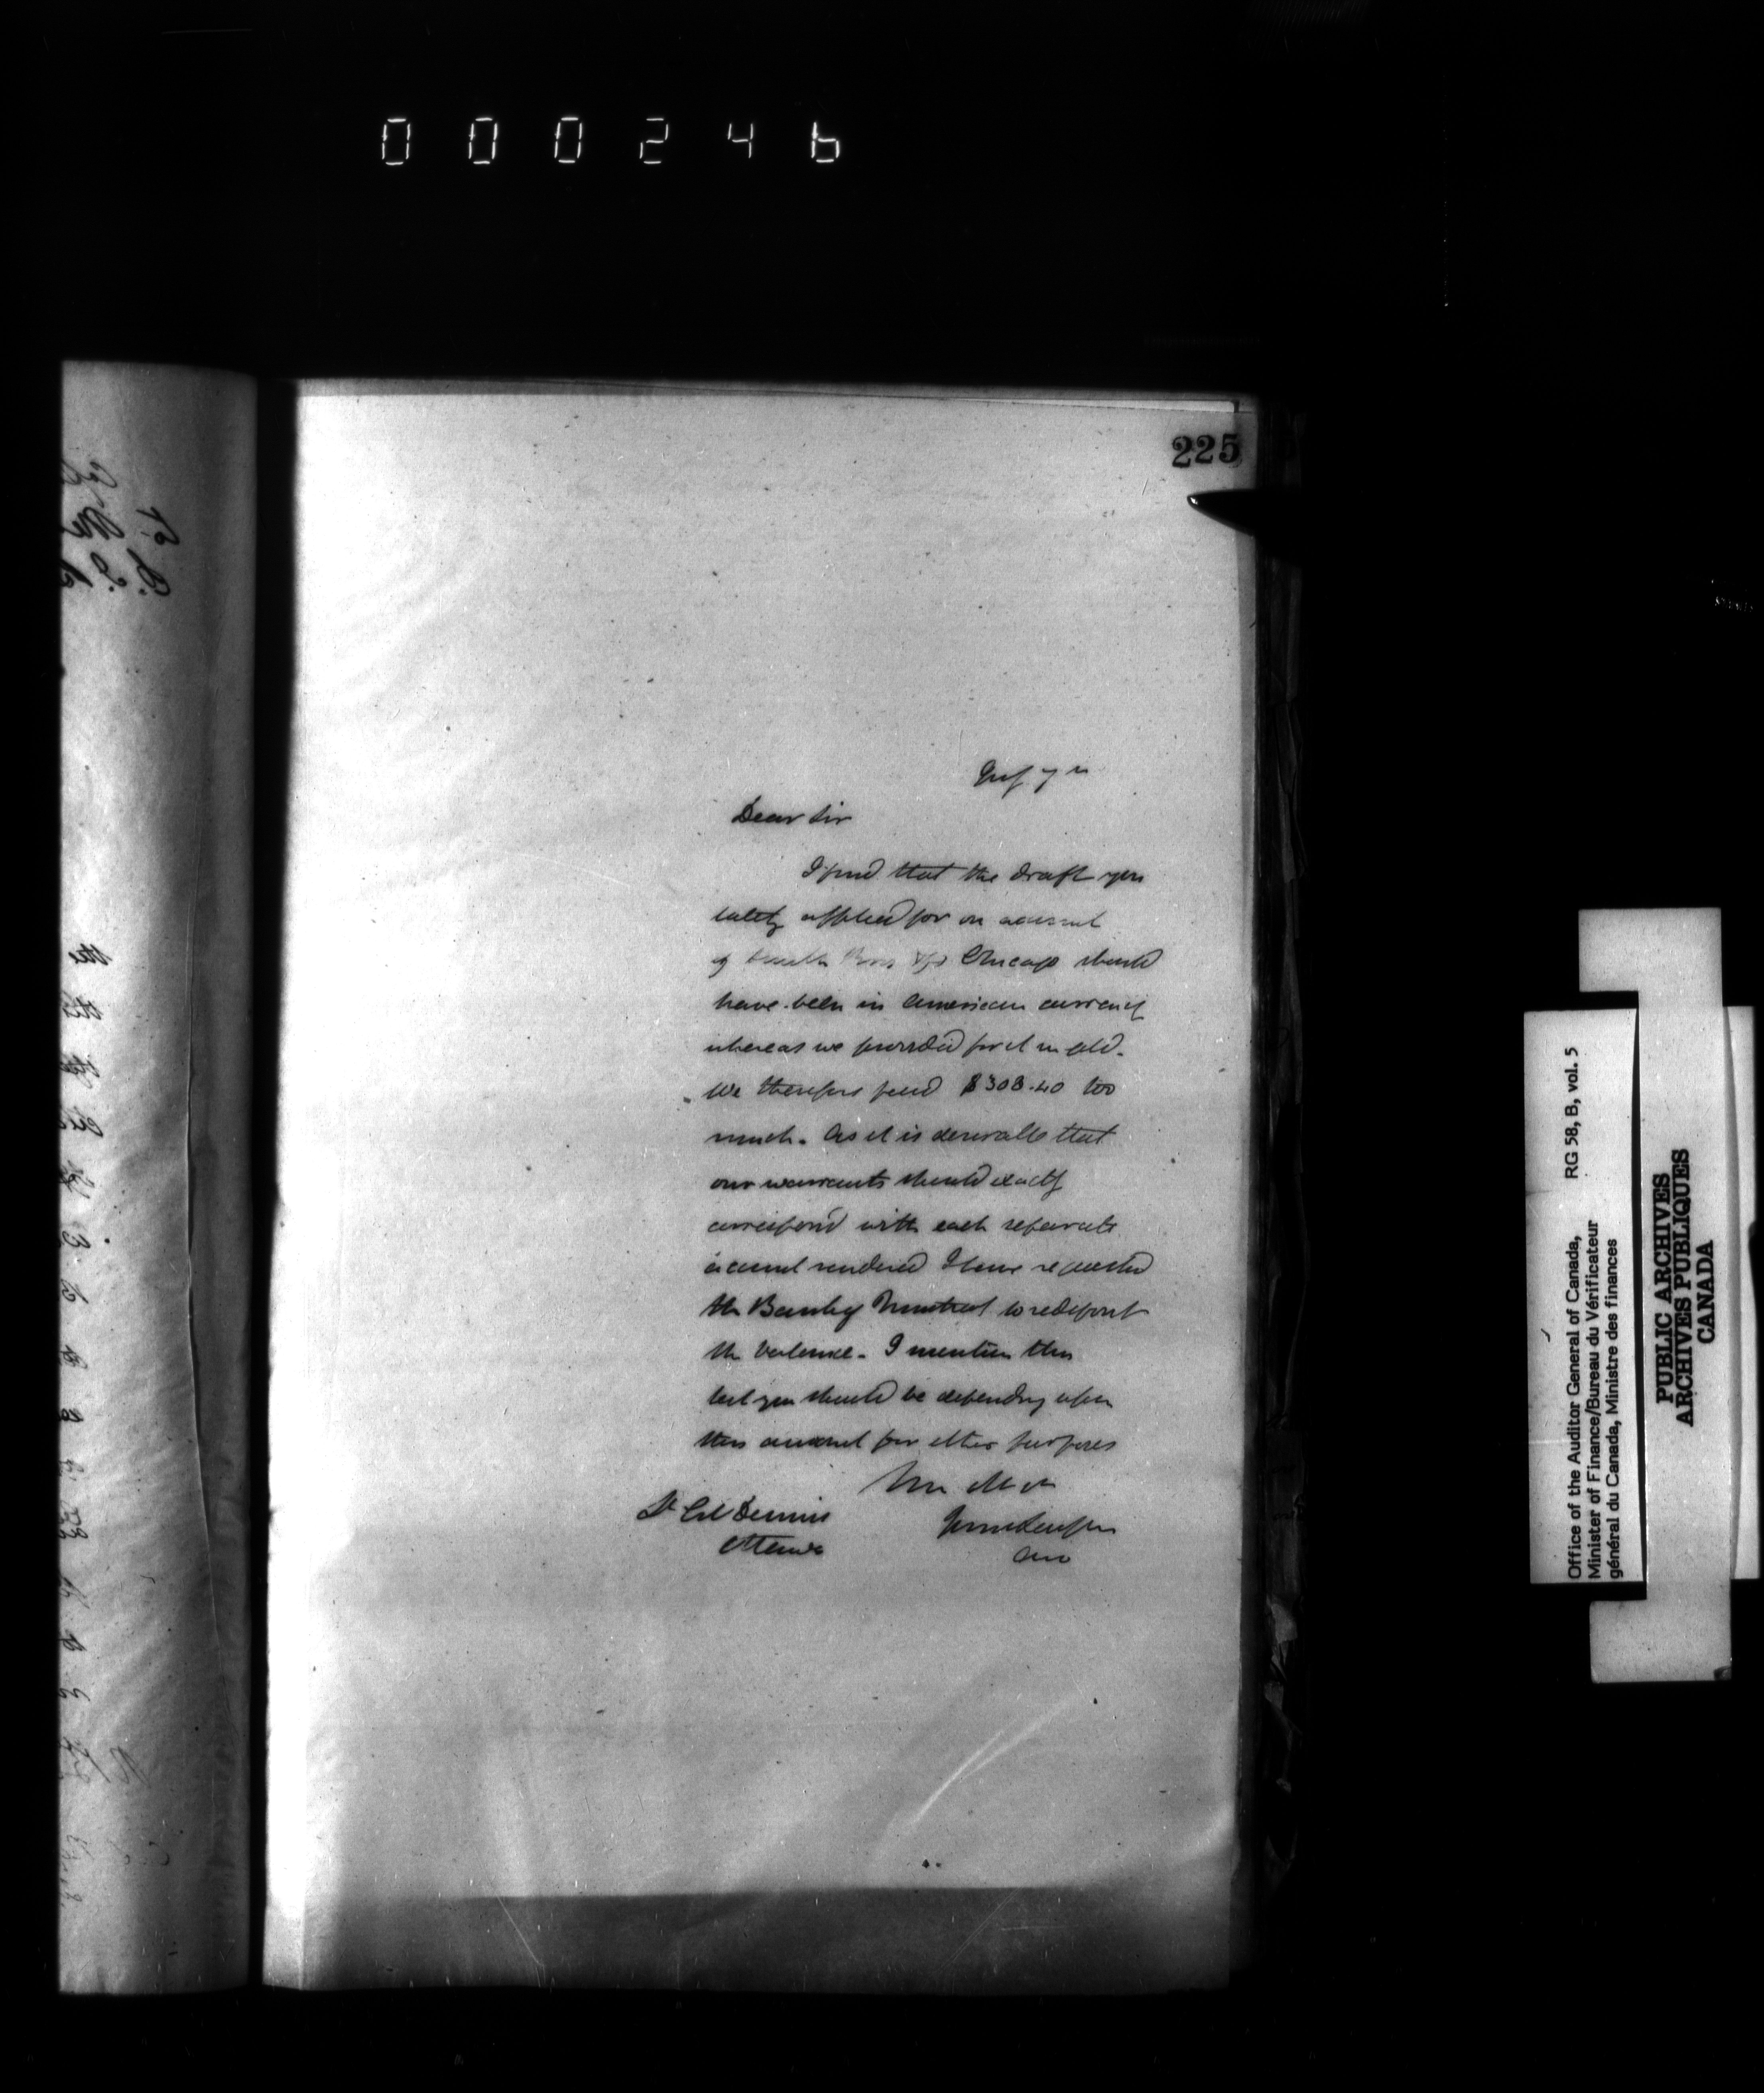 000246
225
Dear Sir
I find that the draft you
lately applied for on account
of Bros & Co Chicago should
have been in American currency
whereas we provided for it in gold.
We therefore paid $308.40 too
much. As it is desirable that
our warrants should exactly
correspond with each separate
account rendered I have requested
the Bank of Montreal to redeposit
the balance. I mention this
lest you should be depending upon
this amount for other purposes
Lt Col Dennis
Ottawa
John Langton
Aud
Office of the Auditor General of Canada,
Minister of Finance/Bureau du Vérificateur
général du Canada, Ministre des finances
RG 58, B, vol. 5
PUBLIC ARCHIVES
ARCHIVES PUBLIQUES
CANADA